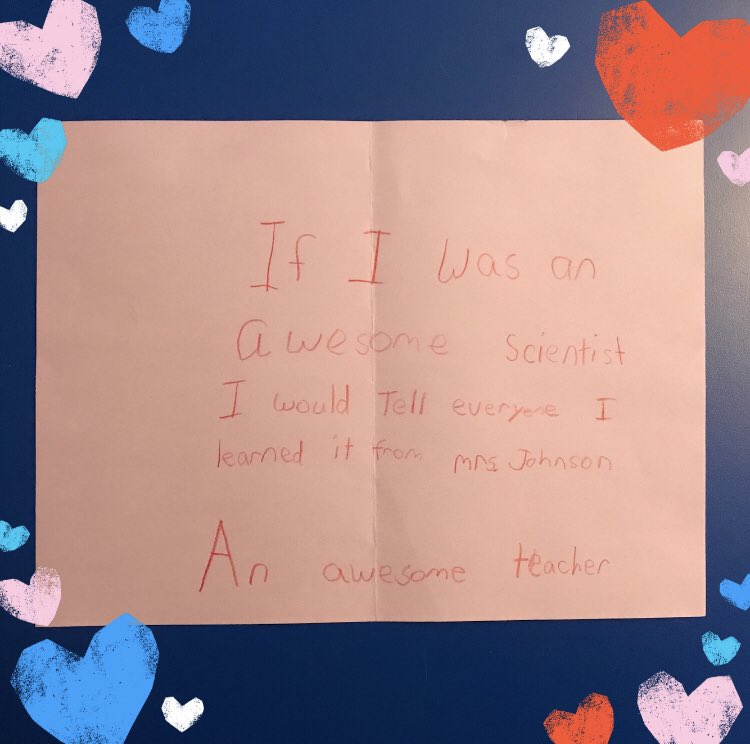 If I was an
awesome scientist
I would Tell everyone I
learned it from mrs. Johnson
An awesome teacher